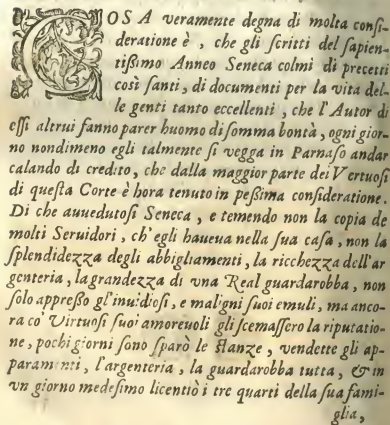 COSA veramente degna di molta consi-
deratione è, che gli scritti del sapien-
tißimo Anneo Seneca colmi di precetti
così santi, di documenti per la vita del-
le genti tanto eccellenti, che l'Autor di
essi altrui fanno parer huomo di somma bontà, ogni gior-
no nondimeno egli talmente si vegga in Parnaso andar
calando di credito, che dalla maggior parte dei Vertuosi
di questa Corte è hora tenuto in peßima consideratione.
Di che auuedutosi Seneca, e temendo non la copia de
molti Seruidori, ch'egli haueua nella sua casa, non la
splendidezza degli abbigliamenti, la ricchezza dell'ar
genteria, la grandezza di vna Real guardarobba, non
solo appreßo gl'inuidiosi, e maligni suoi emuli, ma anco-
ra co' Virtuosi suoi amoreuoli gli scemassero la riputatio-
ne, pochi giorni sono sparò le stanze, vendette gli ap-
paramenti, l'argenteria, la guardarobba tutta, & in
vn giorno medesimo licentiò i tre quarti della sua fami-
glia,